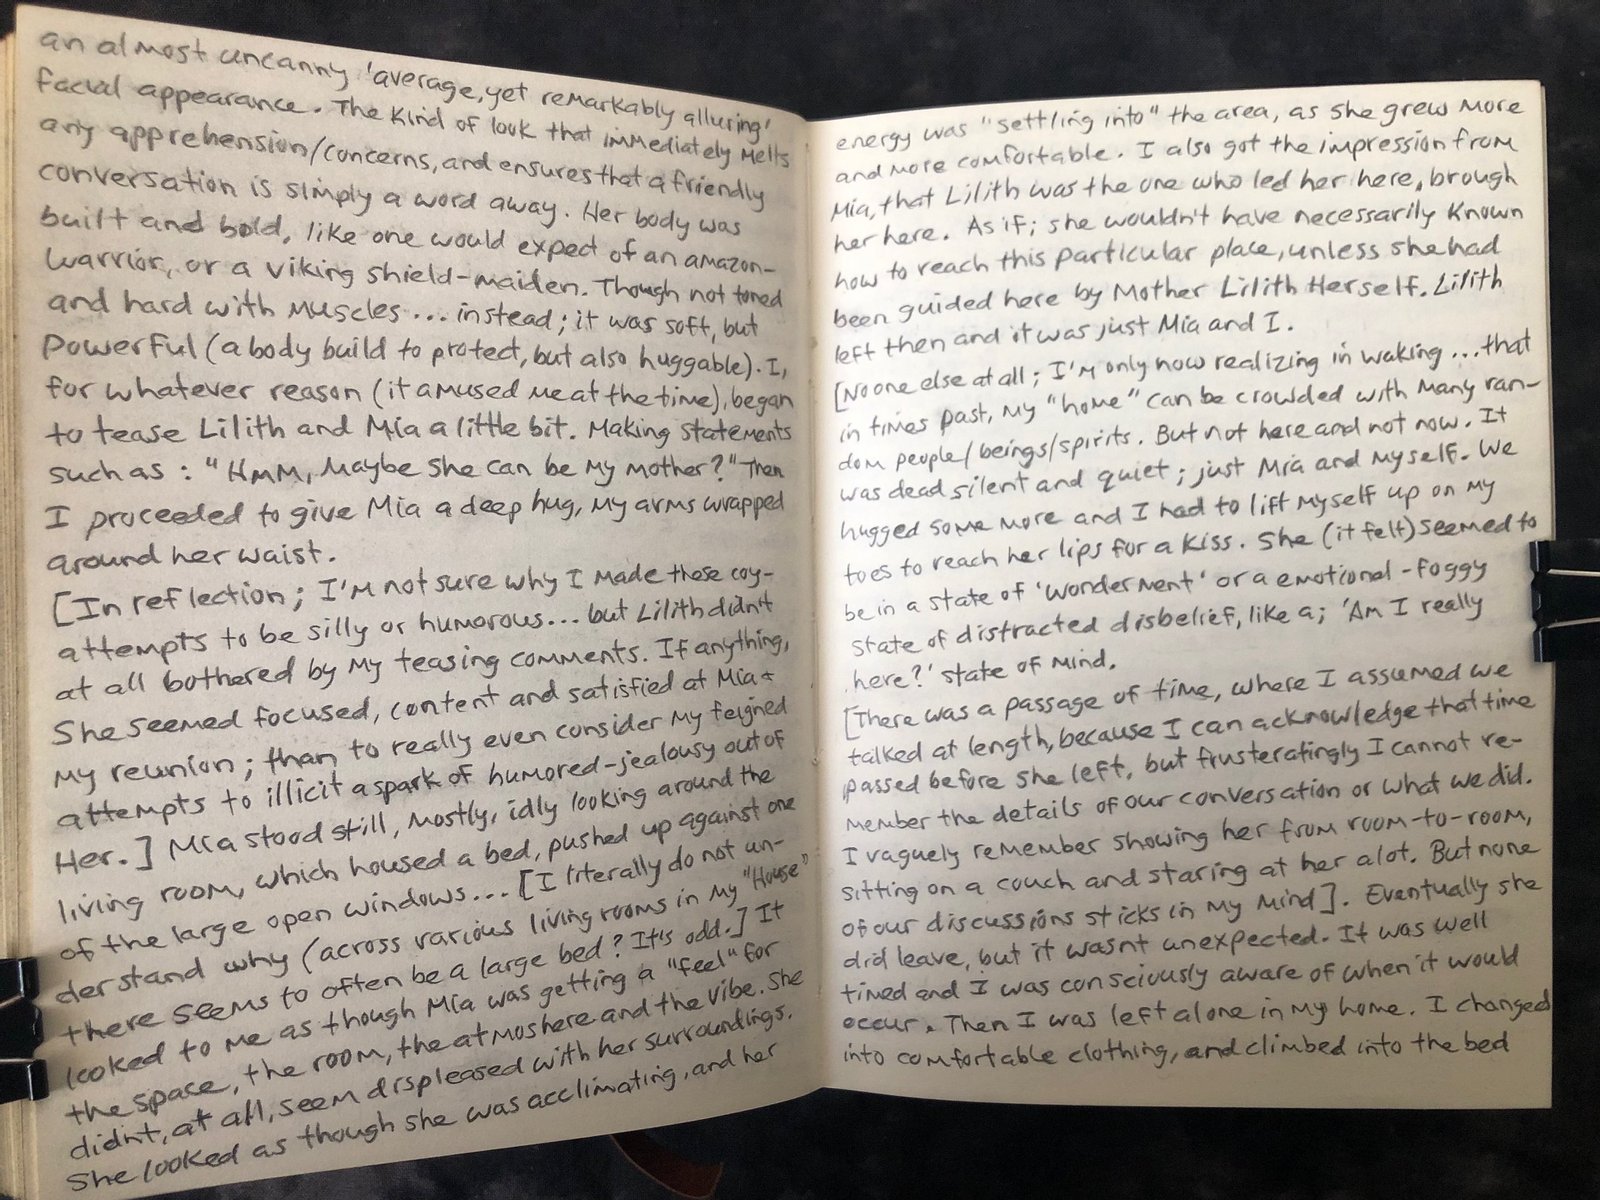 an almost uncanny 'average, yet remarkably alluring'
facial appearance. The kind of look that immediately melts
any apprehension/concerns, and ensures that a friendly
conversation is simply a word away. Her body was
built and bold, like one would expect of an amazon-
warrior, or a viking shield-maiden. Though not toned
and hard with muscles... instead; it was soft, but
powerful (a body build to protect, but also huggable). I,
for whatever reason (it amused me at the time), began
to tease Lilith and Mia a little bit. Making statements
such as: "Hmm, maybe she can be my mother?" Then
I proceeded to give Mia a deep hug, my arms wrapped
around her waist.
[In reflection; I'm not sure why I made these coy-
attempts to be silly or humorous... but Lilith didn't
at all bothered by my teasing comments. If anything,
She seemed focused, content and satisfied at Mia +
my reunion; than to really even consider my feigned
attempts to illicit a spark of humored-jealousy out of
Her.] Mia stood still, mostly, idly looking around the
living room, which housed a bed, pushed up against one
of the large open windows... [I literally do not un-
derstand why (across various living rooms in my "House"
there seems to often be a large bed? It's odd.] It
looked to me as though Mia was getting a "feel" for
the space, the room, the atmoshere and the vibe. She
didn't, at all, seem displeased with her surroundings.
She looked as though she was acclimating, and her
energy was "settling into" the area, as she grew more
and more comfortable. I also got the impression from
Mia, that Lilith was the one who led her here, brough
her here. As if; she wouldn't have necessarily known
how to reach this particular place, unless she had
been guided here by Mother Lilith Herself. Lilith
left then and it was just Mia and I.
[No one else at all; I'm only now realizing in waking... that
in times past, my "home" can be crowded with many ran-
dom people/beings/spirits. But not here and not now. It
was dead silent and quiet; just Mia and myself. We
hugged some more and I had to lift myself up on my
toes to reach her lips for a kiss. She (it felt) seemed to
be in a state of 'wonderment' or a emotional-foggy
state of distracted disbelief, like a; 'Am I really
here?' state of mind.
[There was a passage of time, where I assumed we
talked at length, because I can acknowledge that time
passed before she left, but frusteratingly I cannot re-
member the details of our conversation or what we did.
I vaguely remember showing her from room-to-room,
sitting on a couch and staring at her alot. But none
of our discussions sticks in my mind]. Eventually she
did leave, but it wasnt unexpected. It was well
timed and I was consciously aware of when it would
occur. Then I was left alone in my home. I changed
into comfortable clothing, and climbed into the bed